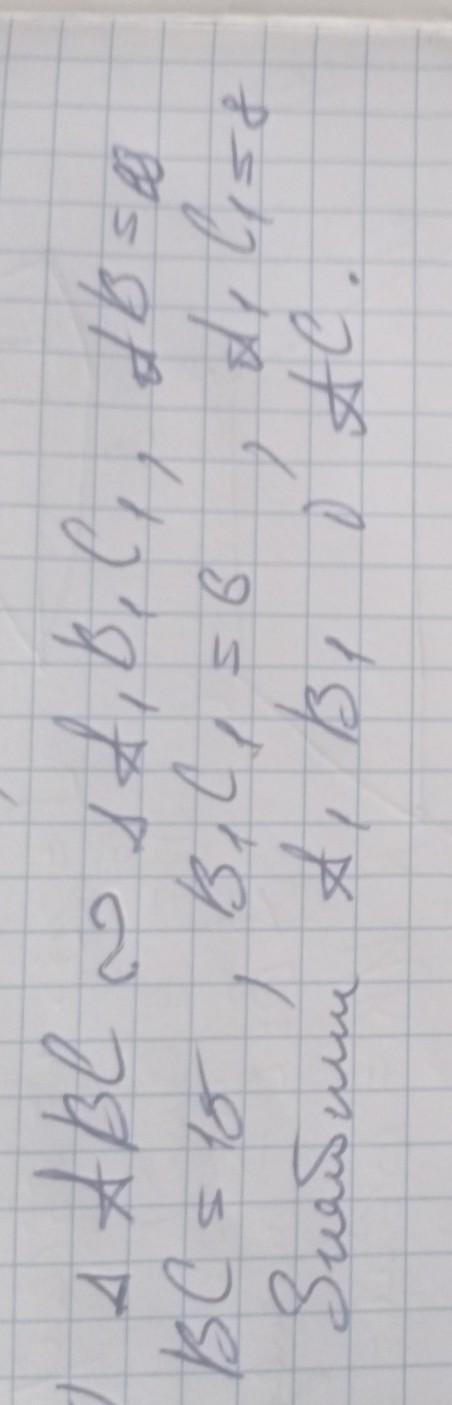 Δ ABC ∾ Δ A₁B₁C₁, AB =
BC = 15, B₁C₁ = 6, A₁C₁ = 8
Знайти A₁B₁ і AC.